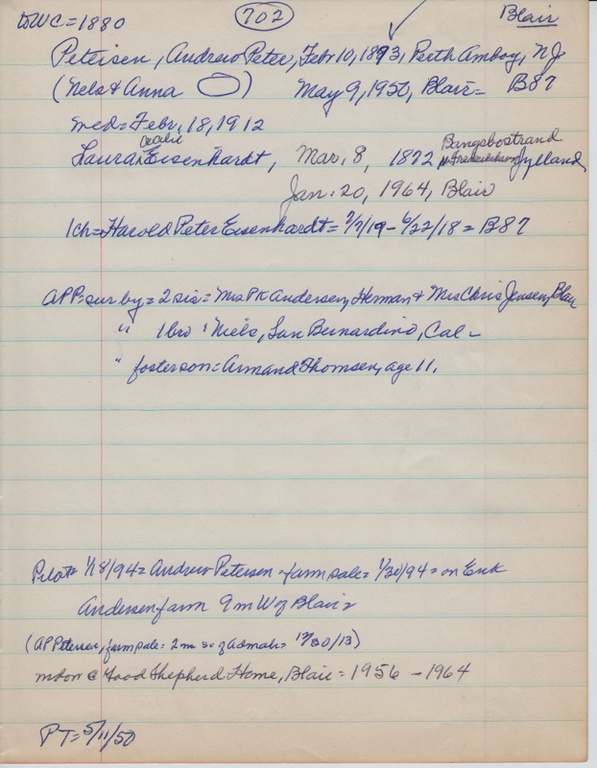 to WC = 1880
702
Blair
Petersen, Andrew Peter, Febr 10, 1873, Perth Amboy, N.J.
(Nels & Anna ) May 9, 1950, Blair = B87
med = Febr, 18, 1912
Cecilie
Laura Eisenhardt, Mar. 8, 1872 Bangsbostrand
Jylland
Jan. 20, 1964, Blair
1 ch = Harold Peter Eisenhardt = 7/7/19 - 6/22/18 = B87
APP = sur by = 2 sis = Mrs PK Andersen, Herman & Mrs Chris Jensen, Blair
" 1 bro = Niels, San Bernardino, Cal -
" foster son = Armand Thomsen, age 11.
Pilot = 1/18/94 = Andrew Petersen = farm sale = 1/30/94 = on Erik
Andersen farm 9 m W of Blair =
(AP Petersen, farm sale = 2 m so of Admah = 12/30/13)
mdon @ Good Shepherd Home, Blair = 1956 - 1964
PT = 5/11/50